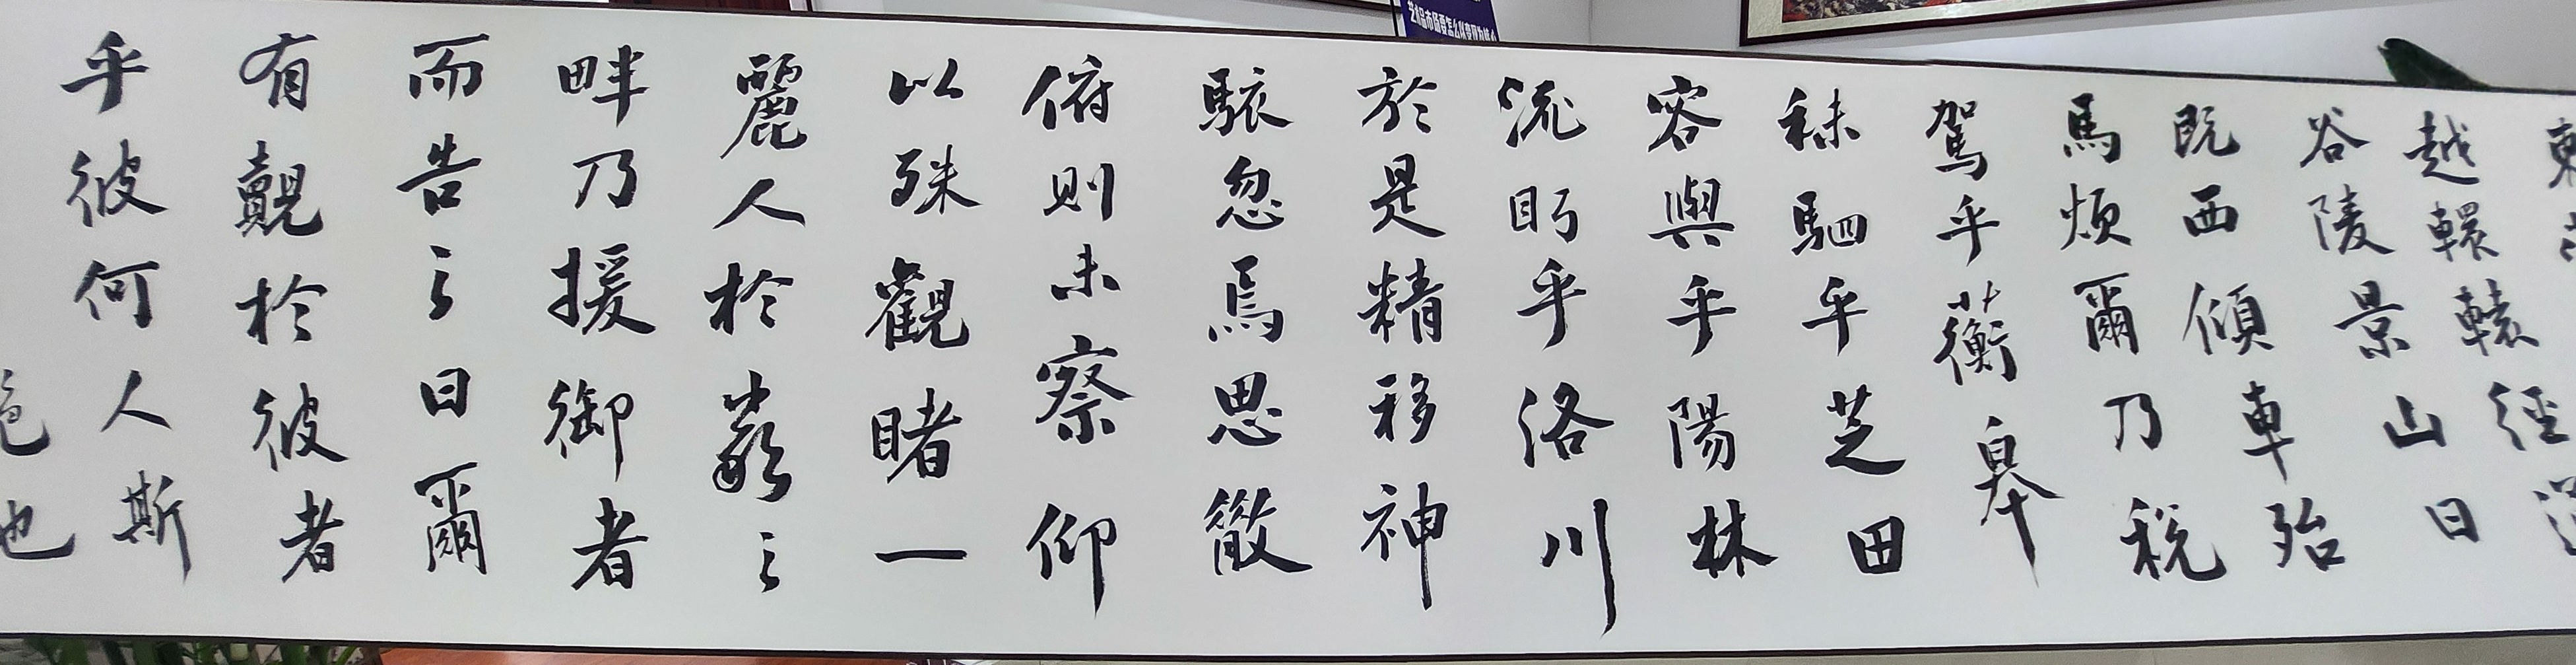 越轘轅經
谷陵景山日
既西傾車殆
馬煩爾乃稅
駕乎蘅皋
秣駟乎芝田
容與乎陽林
流眄乎洛川
於是精神移神
駭忽焉思散
俯則未察仰
以殊觀睹一
麗人於巖之
畔乃援御者
而告之曰爾
有覿於彼者
乎彼何人斯
艷也
艺术品市场要怎么以变现为核心